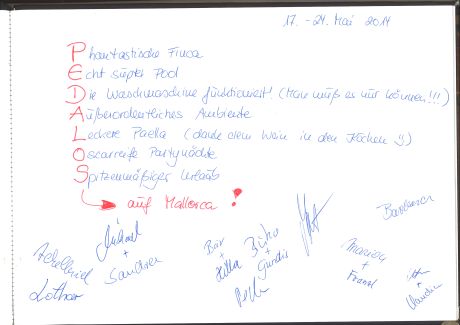 17. - 24. Mai 2014
Phantastische Finca
Echt super Pool
Die Waschmaschine funktioniert! (Man muß es nur können!!!)
Außerordentliches Ambiente
Leckere Paella (dank dem Wein in den Köchen :))
Oscarreife Partynächte
Spitzenmäßiger Urlaub
auf Mallorca !
Barbara
Michael
+
Sandra
Lothar
+
Gundis
Marion
+
Franz
+
Claudia